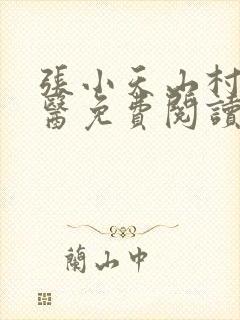 張小天山村
醫免費閱讀
蘭山中